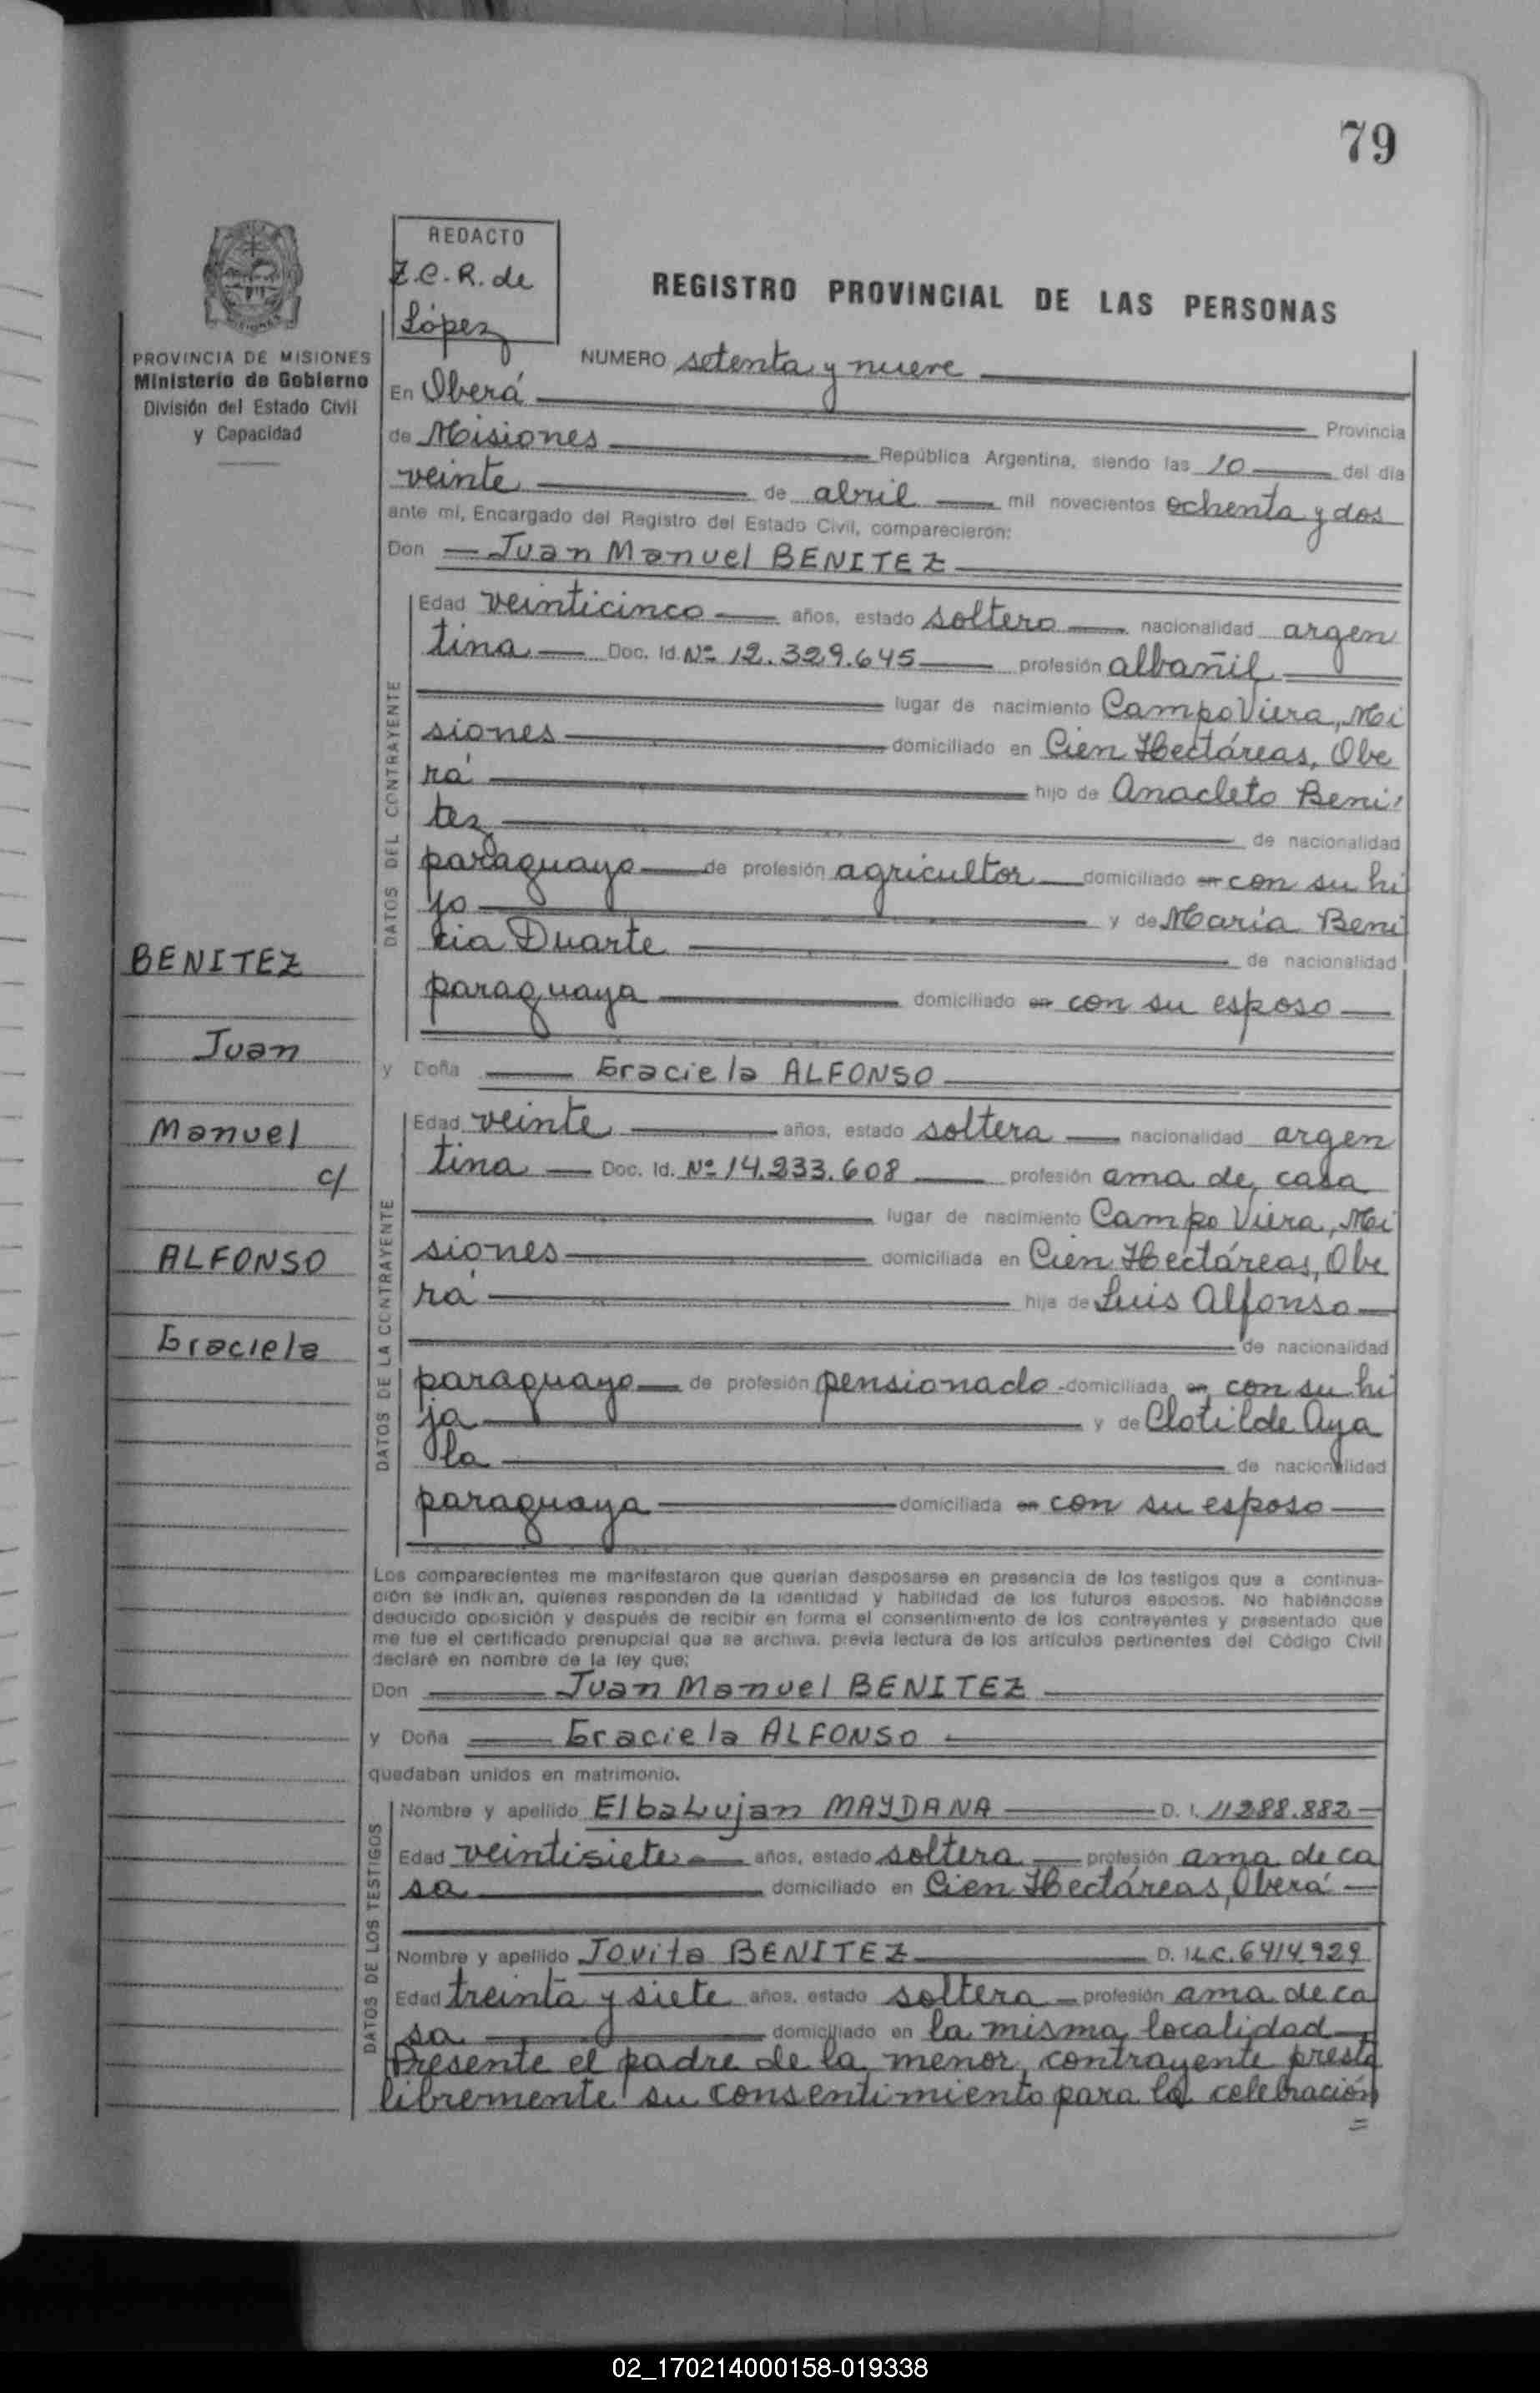 79
REDACTO
Z.C.R. de
López
REGISTRO PROVINCIAL DE LAS PERSONAS
PROVINCIA DE MISIONES
Ministerio de Gobierno
División del Estado Civil
y Capacidad
NUMERO setenta y nueve
En Oberá
Provincia
de Misiones República Argentina, siendo las 10 del día
veinte de abril mil novecientos ochenta y dos
ante mi, Encargado del Registro del Estado Civil, comparecieron:
Don Juan Manuel BENITEZ
DATOS DEL CONTRAYENTE
Edad veinticinco años, estado soltero nacionalidad argen
tina Doc. Id. Nº 12.329.645 profesión albañil
lugar de nacimiento Campo Viera, Mi
siones domiciliado en Cien Hectáreas, Obe
rá hijo de Anacleto Beni
tez de nacionalidad
paraguayo de profesión agricultor domiciliado en con su hi
jo y de María Beni
cia Duarte de nacionalidad
paraguaya domiciliado en con su esposo
y Doña Graciela ALFONSO
DATOS DE LA CONTRAYENTE
Edad veinte años, estado soltera nacionalidad argen
tina Doc. Id. Nº 14.233.608 profesión ama de casa
lugar de nacimiento Campo Viera, Mi
siones domiciliada en Cien Hectáreas, Obe
rá hija de Luis Alfonso
de nacionalidad
paraguayo de profesión pensionado domiciliada en con su hi
ja y de Clotilde Aya
la de nacionalidad
paraguaya domiciliada en con su esposo
BENITEZ
Juan
Manuel
c/
ALFONSO
Graciela
Los comparecientes me manifestaron que querían desposarse en presencia de los testigos que a continua-
ción se indican, quienes responden de la identidad y habilidad de los futuros esposos. No habiéndose
deducido oposición y después de recibir en forma el consentimiento de los contrayentes y presentado que
me fue el certificado prenupcial que se archiva, previa lectura de los artículos pertinentes del Código Civil
declaré en nombre de la ley que:
Don Juan Manuel BENITEZ
y Doña Graciela ALFONSO
quedaban unidos en matrimonio.
DATOS DE LOS TESTIGOS
Nombre y apellido Elba Lujan MAYDANA D. I. 11288.882
Edad veintisiete años, estado soltera profesión ama de ca
sa domiciliado en Cien Hectáreas, Oberá
Nombre y apellido Jovita BENITEZ D. I L.C. 6414.929
Edad treinta y siete años, estado soltera profesión ama de ca
sa domiciliado en la misma localidad
Presente el padre de la menor contrayente presta
libremente su consentimiento para la celebración
=
02_170214000158-019338